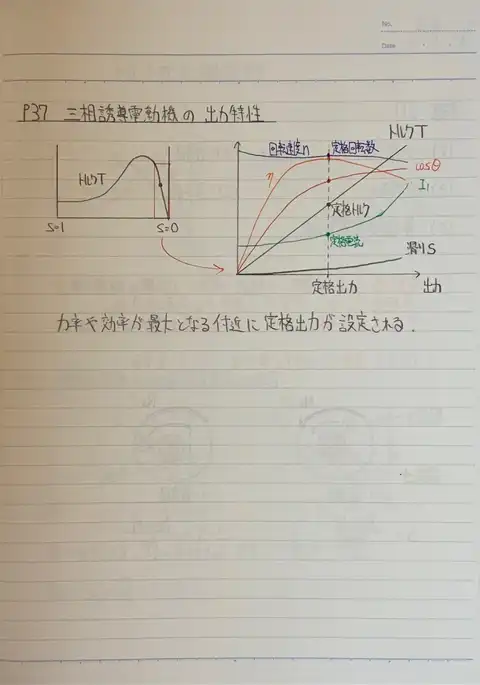 No.
Date
P37 三相誘導電動機の出力特性
トルクT
回転速度n 定格回転数
トルクT
η
cosθ
I₁
定格トルク
定格電流
滑りS
S=1 S=0
定格出力
出力
力率や効率が最大となる付近に定格出力が設定される.